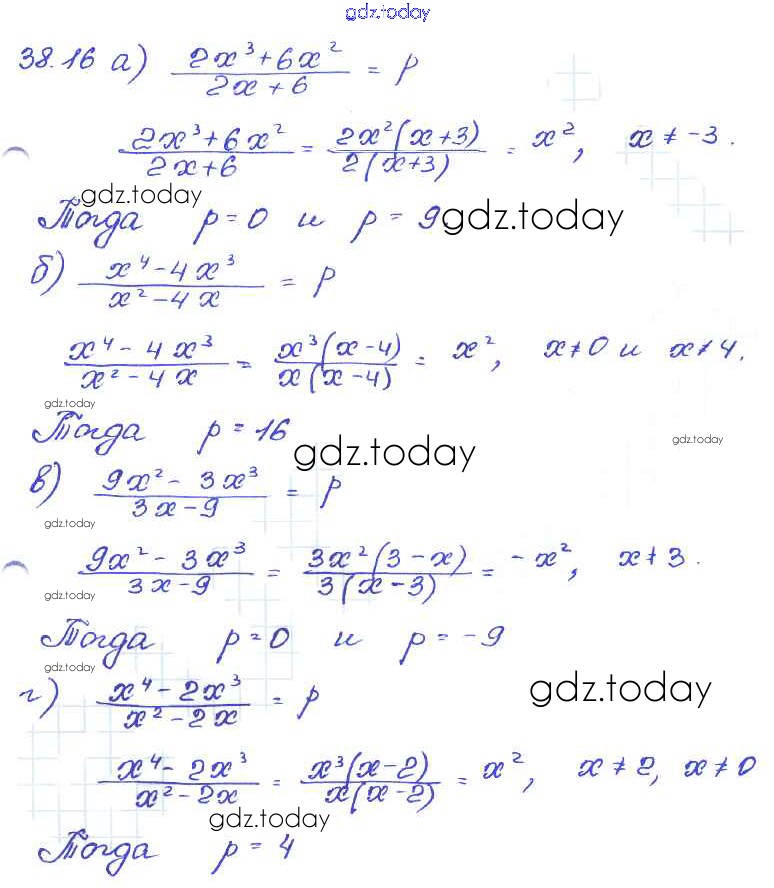 gdz.today
38.16 а) (2x³+6x²)/(2x+6) = p
(2x³+6x²)/(2x+6) = 2x²(x+3)/2(x+3) = x², x ≠ -3.
gdz.today
Тогда p=0 и p=9
gdz.today
б) (x⁴-4x³)/(x²-4x) = p
(x⁴-4x³)/(x²-4x) = x³(x-4)/x(x-4) = x², x≠0 и x≠4.
gdz.today
Тогда p=16
gdz.today
gdz.today
в) (9x²-3x³)/(3x-9) = p
gdz.today
(9x²-3x³)/(3x-9) = 3x²(3-x)/3(x-3) = -x², x≠3.
gdz.today
Тогда p=0 и p=-9
gdz.today
г) (x⁴-2x³)/(x²-2x) = p
gdz.today
(x⁴-2x³)/(x²-2x) = x³(x-2)/x(x-2) = x², x≠2, x≠0
gdz.today
Тогда p=4